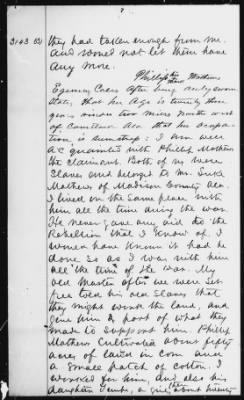 3143 (3)
they had taken enough from me.
and would not let them have
any more.
Phillip Mathews
after being duly sworn
State, that his Age is twenty three
years miles North west
of Courtland Ala that his occupation
is I am well
acquainted with Phillip Mathews
the claimant. Both of us were
slaves and belonged to Mr. Luke
Mathews of Madison County Ala.
I lived on the same place with
him all the time during the war.
He never gave any aid to the
Rebellion that I know of. I
would have known it had he
done so as I was with him
all the time of the war. My
old Master after we were set
free told his old slaves that
they might work the land, and
give him a part of what they
made to support him. Phillip
Mathews cultivated about fifty
acres of land in corn and
a small patch of cotton. I
worked for him, and also his
daughter about twenty